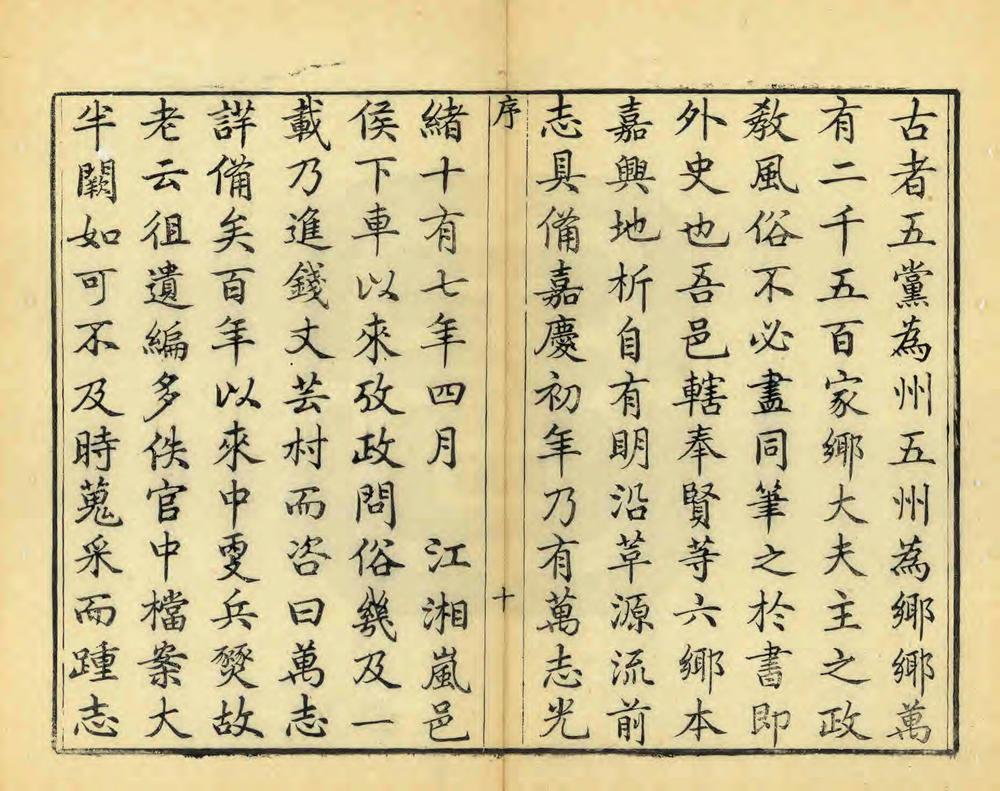 古者五黨為州五州為鄉鄉萬
有二千五百家鄉大夫主之政
敎風俗不必盡同筆之於書即
外史也吾邑轄奉賢等六鄉本
嘉興地析自有明沿革源流前
志具備嘉慶初年乃有萬志光
序 十
緒十有七年四月 江湘嵐邑
侯下車以來攷政問俗幾及一
載乃進錢丈芸村而咨曰萬志
詳備矣百年以來中更兵燹故
老云徂遺編多佚官中檔案大
半闕如可不及時蒐采而踵志